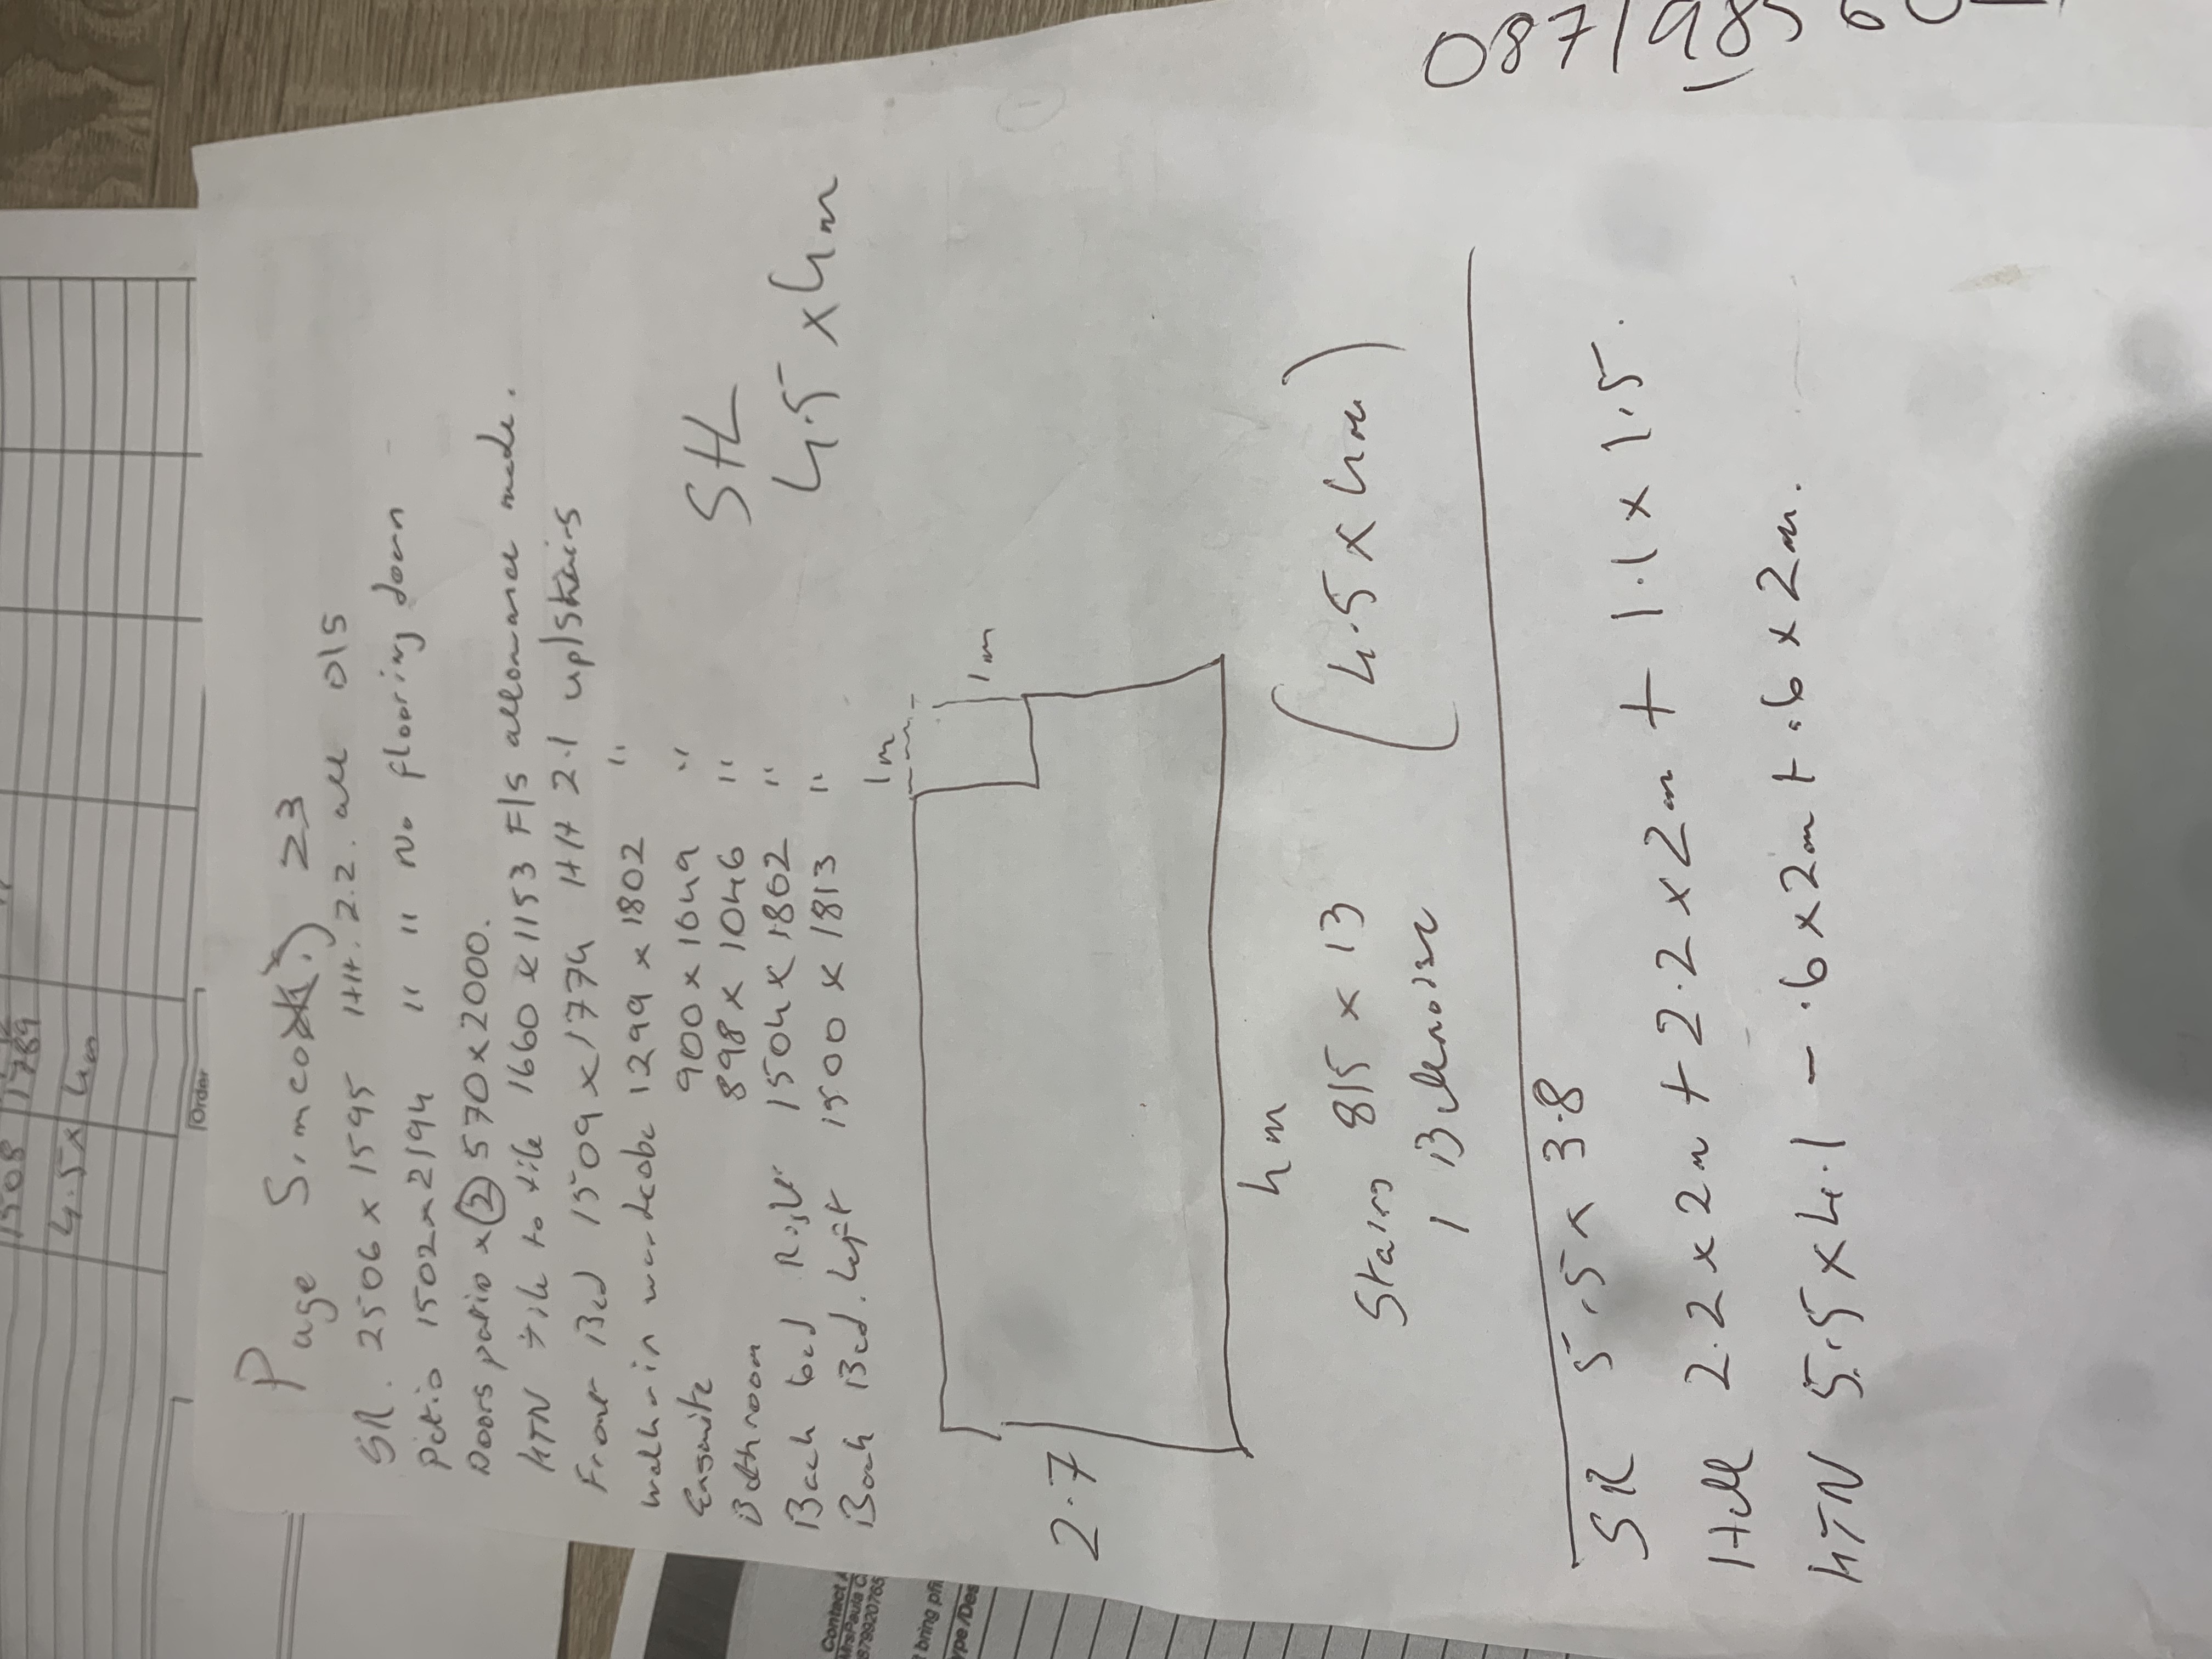 Page Simcox 23
SR. 2506 x 1595 HH. 2.2. all O/S
Patio 1502 x 2194 " " No flooring down
Doors patio x (2) 570 x 2000.
KTN tile to tile 1660 x 1153 F/S allowance made.
Front Bed 1509 x 1774 HH 2.1 up/stairs
walk in wardeobe 1299 x 1802 "
Ensuite 900 x 1049 "
Bathroom 898 x 1046 "
Back bed Right 1504 x 1802 "
Back Bed. Left 1500 x 1813 "
SHL
4.5 x 4m
1m
1m
2.7
4m
(4.5 x 4m)
Stairs 815 x 13
1 Bullnose
SR 5.5 x 3.8
Hall 2.2 x 2m + 2.2 x 2m + 1.1 x 1.5.
KTN 5.5 x 4.1 - .6 x 2m + .6 x 2m.
087198560
1508 1789
4.5 x 4m
Order
Contact
Mrs Paula C
879920765
bring